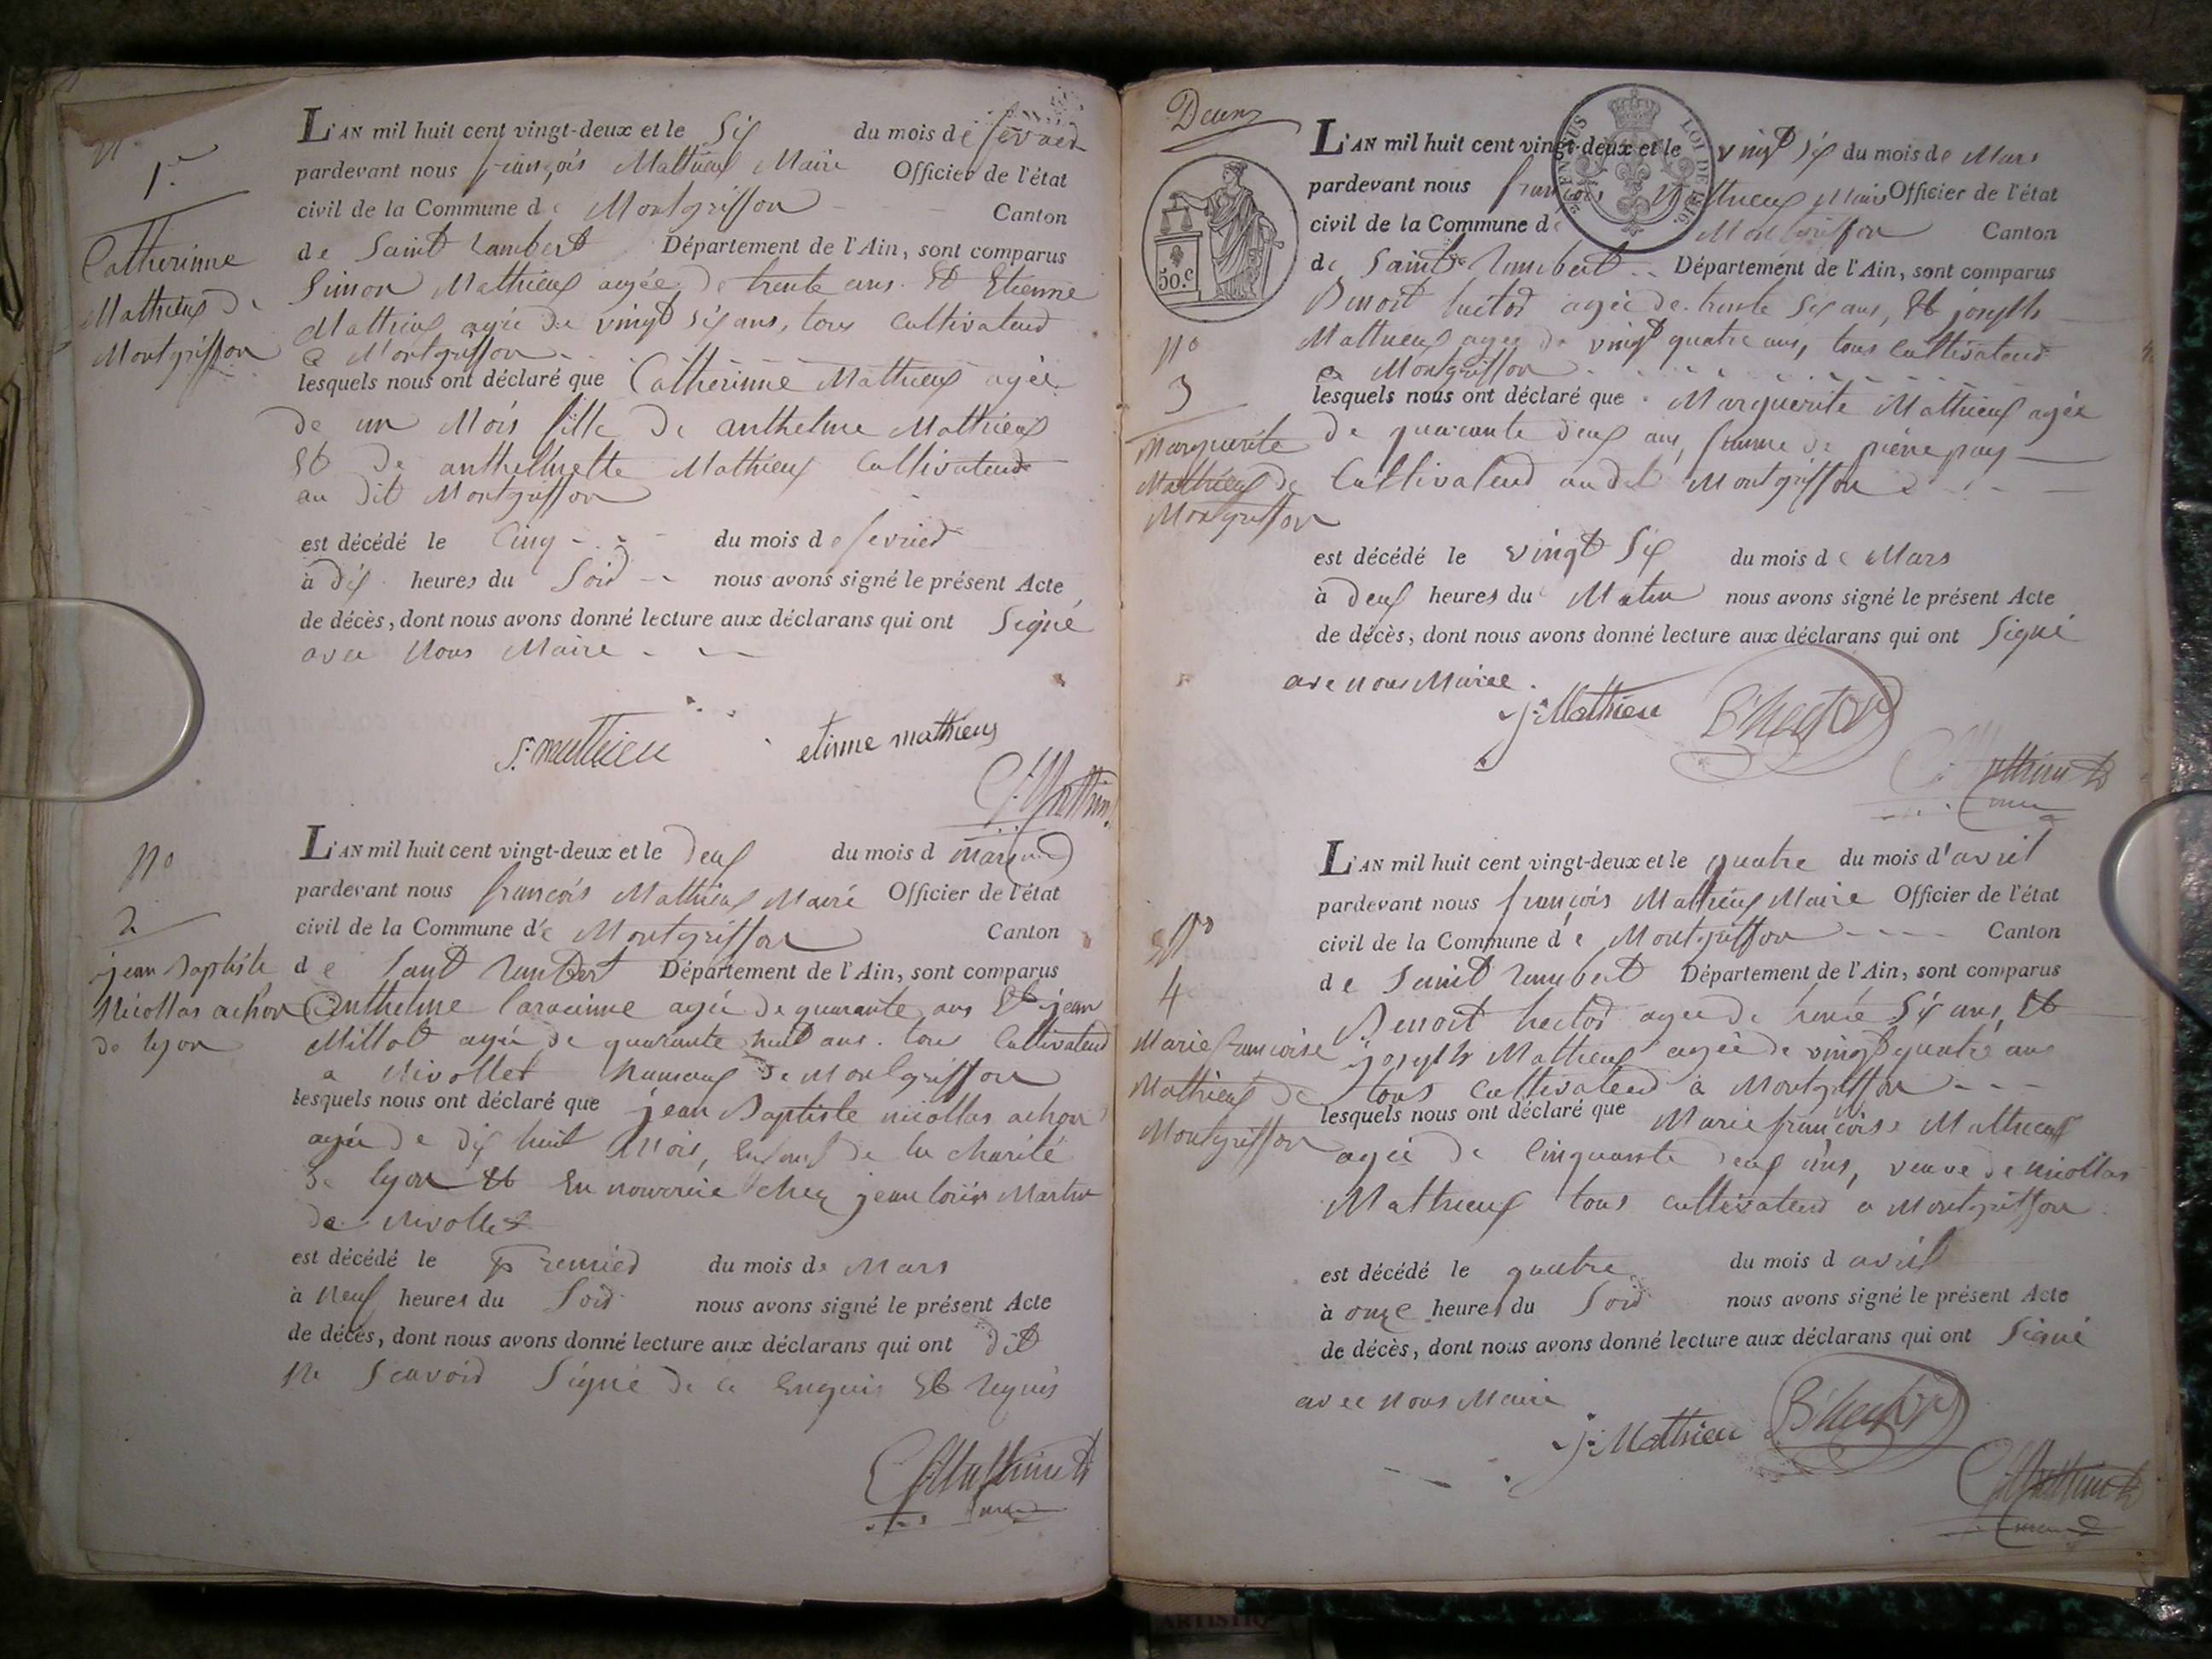 1.er
Catherinne
Mathieux de
Montgriffon
L'AN mil huit cent vingt-deux et le Six du mois de fevrier
pardevant nous françois Mathieux Maire Officier de l'état
civil de la Commune de Montgriffon Canton
de Saint Rambert Département de l'Ain, sont comparus
Simon Mathieux agée de trente ans Et Etienne
Mathieux agée de vingt six ans, tous Cultivateurs
a Montgriffon
lesquels nous ont déclaré que Catherinne Mathieux agée
de un Mois fille de anthelme Mathieux
Et de anthelmette Mathieux Cultivateurs
au dit Montgriffon
est décédé le Cinq du mois de fevrier
à dix heures du Soir nous avons signé le présent Acte
de décès, dont nous avons donné lecture aux déclarans qui ont Signé
avec Nous Maire
S. mathieu etinne mathieus
f. Mathieu
No
2
jean Baptiste
Nicollas achon
de lyon
L'AN mil huit cent vingt-deux et le deux du mois d mars
pardevant nous françois Mathieux Maire Officier de l'état
civil de la Commune de Montgriffon Canton
de Saint Rambert Département de l'Ain, sont comparus
Anthelme agée de quarante ans Et jean
Millot agée de quarante huit ans tous Cultivateurs
a Nivollet hameaux de Montgriffon
lesquels nous ont déclaré que jean Baptiste nicollas achon
agée de dix huit Mois, Enfant de la charité
de lyon Et En chez jean Martin
de Nivollet
est décédé le premier du mois de Mars
à Neuf heures du Soir nous avons signé le présent Acte
de décès, dont nous avons donné lecture aux déclarans qui ont dit
Ne Scavoir Signé de ce Enquis Et Requis
f. Mathieux
maire
Deux
50.c
TIMBRE
LOI DE 1816.
No
3
Marguerite
Mathieux de
Montgriffon
L'AN mil huit cent vingt-deux et le vingt six du mois de Mars
pardevant nous françois Mathieux Maire Officier de l'état
civil de la Commune de Montgriffon Canton
de Saint Rambert Département de l'Ain, sont comparus
Benoit hector agée de trente Six ans, Et joseph
Mathieux agée de vingt quatre ans, tous Cultivateurs
a Montgriffon
lesquels nous ont déclaré que Marguerite Mathieux agée
de quarante deux ans, femme de pierre
Cultivateur au dit Montgriffon
est décédé le vingt Six du mois de Mars
à deux heures du Matin nous avons signé le présent Acte
de décès, dont nous avons donné lecture aux déclarans qui ont Signé
ave nous Maire
j. Mathieu B hector
f. Mathieux
maire
No
4
Marie francoise
Mathieux de
Montgriffon
L'AN mil huit cent vingt-deux et le quatre du mois d'avril
pardevant nous françois Mathieux Maire Officier de l'état
civil de la Commune de Montgriffon Canton
de Saint Rambert Département de l'Ain, sont comparus
Benoit hector agée de trente Six ans, Et
joseph Mathieux agée de vingt quatre ans
tous cultivateur a Montgriffon
lesquels nous ont déclaré que Marie françoise Mathieux
agée de Cinquante deux ans, veuve de nicollas
Mathieux tous cultivateur a Montgriffon
est décédé le quatre du mois d avril
à onze heures du Soir nous avons signé le présent Acte
de décès, dont nous avons donné lecture aux déclarans qui ont Signé
avec nous Maire
j. Mathieu B hector
f. Mathieux
maire